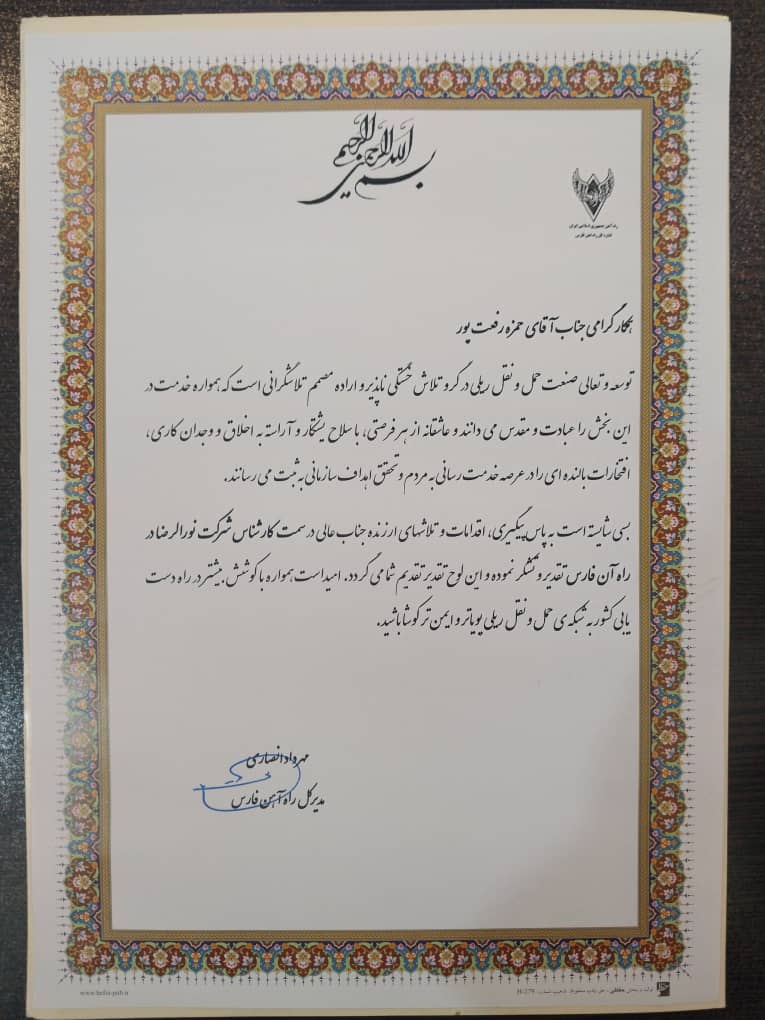 بسم الله الرحمن الرحیم
راه آهن جمهوری اسلامی ایران
اداره کل راه آهن فارس
همکار گرامی جناب آقای حمزه رفعت پور
توسعه و تعالی صنعت حمل و نقل ریلی در گرو تلاش خستگی ناپذیر و اراده مصمم تلاشگرانی است که همواره خدمت در
این بخش را عبادت و مقدس می دانند و عاشقانه از هر فرصتی، با سلاح پشتکار و آراسته به اخلاق و وجدان کاری،
افتخارات بالنده ای را در عرصه خدمت رسانی به مردم و تحقق اهداف سازمانی به ثبت می رسانند.
بسی شایسته است به پاس پیگیری، اقدامات و تلاشهای ارزنده جناب عالی در سمت کارشناس شرکت نورالرضا در
راه آن فارس تقدیر و تشکر نموده و این لوح تقدیر تقدیم شما می گردد. امید است همواره با کوشش بیشتر در راه دست
یابی کشور به شبکه ی حمل و نقل ریلی پویاتر و ایمن تر کوشا باشید.
مهرداد انصاری
مدیرکل راه آهن فارس